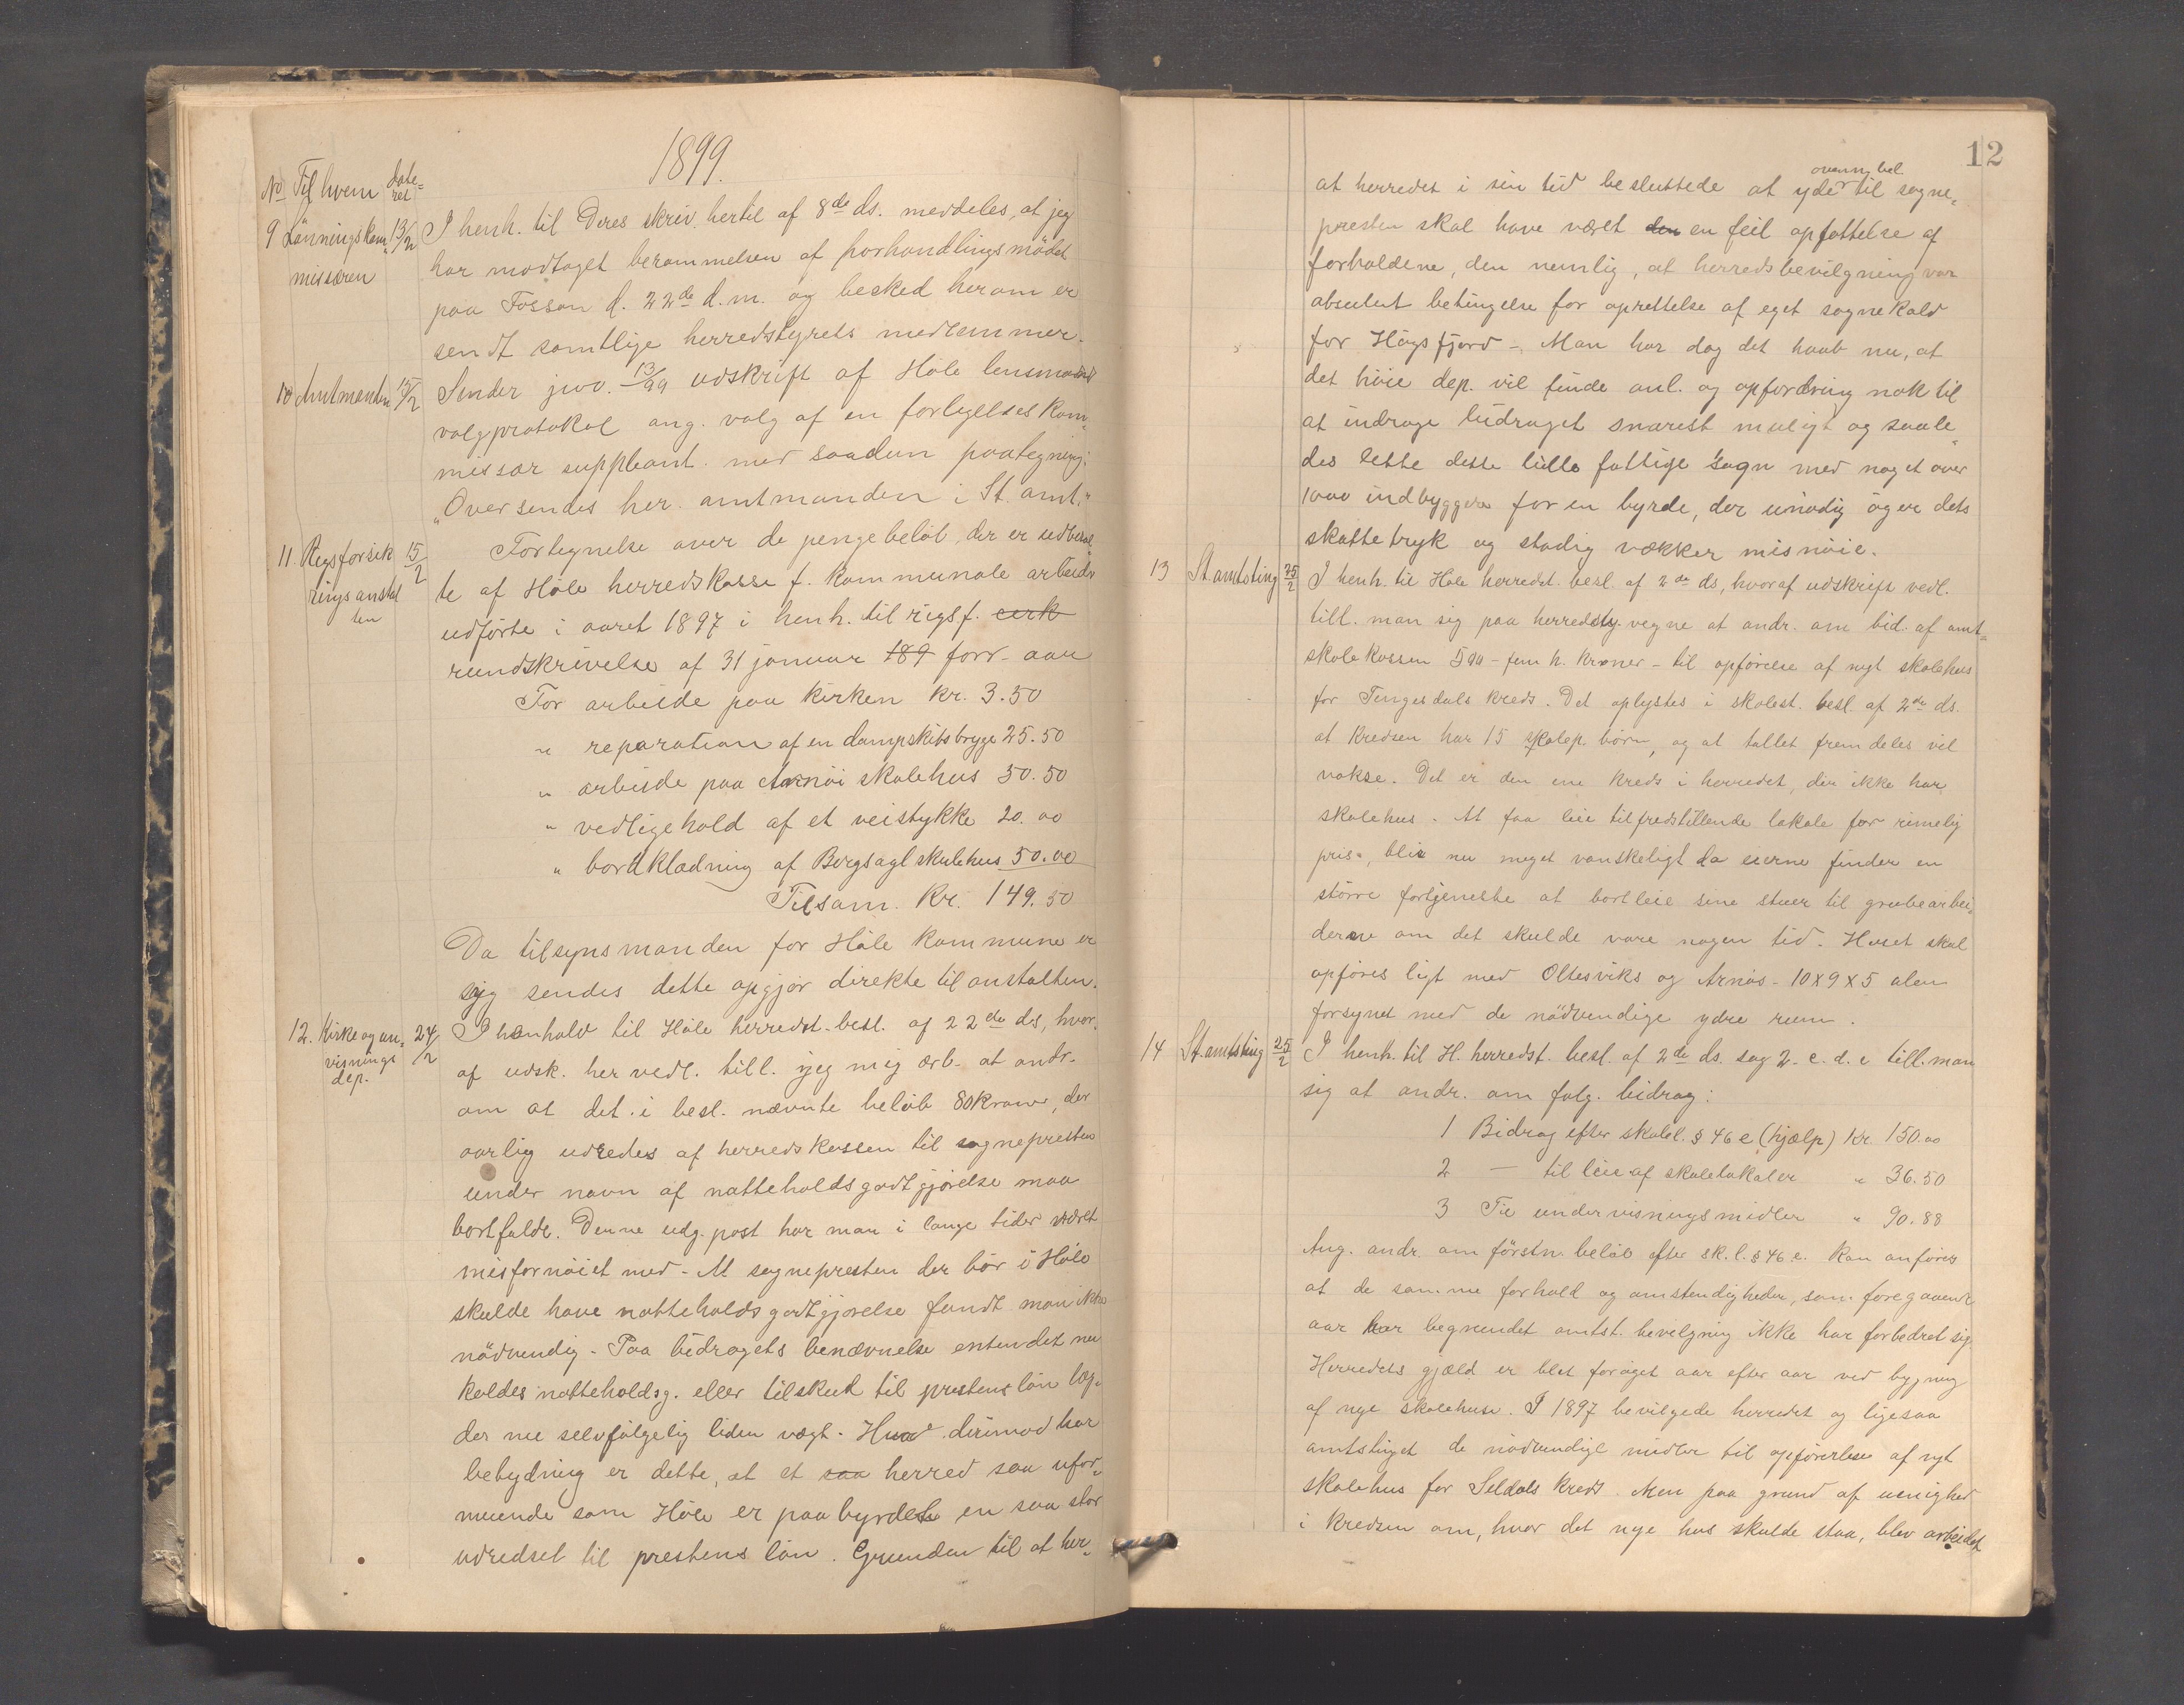 1899.
No Til hvem date=
ret
9 Lönningskom= 13/2 I henh. til Deres skriv. hertil af 8de ds. meddeles, at jeg
missæren har modtaget berammelsen af forhandlingsmödet
paa Fossan d. 22de d.m. og besked herom er
sendt samtlige herredstyrets medlemmer.
10 Amtmanden 15/2 Sender jno. 13/99 udskrift af Höle lensmands
valgprotokol ang. valg af en forligelseskom=
missær suppleant med saadan paategning:
"Oversendes hr. amtmanden i St. amt."
11 Rigsforsik 15/2 Fortegnelse over de pengebelöb, der er udbetal
ringsanstal te af Höle herredskasse f. kommunale arbeider
ten
udförte i aaret 1897 i henh. til rigsf. cirk
rundskrivelse af 31 januar 189 forr. aar
For arbeide paa kirken kr. 3.50
" reparation af en dampskibsbrygge 25.50
" arbeide paa Arnöi skolehus 50.50
" vedligehold af et veistykke 20.00
" bordklædning af Bergsagl skolehus 50.00
Tilsam. Kr. 149.50
Da tilsynsmanden for Höle kommune er
syg sendes dette opgjör direkte til anstalten.
12. Kirke og un= 24/2 I henhold til Höle herredst. besl. af 22de ds, hvor=
visnings
dep.
af udsk. her vedl. till. jeg mig ærb. at andr.
om at det i besl. nævnte belöb 80 kroner, der
aarlig udredes af herredskassen til sognepresten
under navn af natteholdsgodtgjörelse maa
bortfalde. Denne udg. post har man i lange tider været
misfornöiet med - At sognepresten der bör i Höle
skulde have natteholdsgodtgjörelse fandt man ikke
nödvendig - Paa bidragets benævnelse enten det nu
kaldes natteholdsg. eller tilskud til prestens lön læg=
der nu selvfölgelig liden vægt. Hvad derimod har
betydning er dette, at et saa herred saa ufor=
muende som Höle er paabyrdet en saa stor
udredsel til prestens lön. Grunden til at her=
12
ovenn. bel.
at herredet i sin tid besluttede at yde til sogne=
presten skal have været den en feil opfattelse af
forholdene, den nemlig, at herredsbevilgning var
absolut betingelse for oprettelse af eget sognekald
for Högsfjord - Man har dog det haab nu, at
det höie dep. vil finde anl. og opfordring nok til
at inddrage bidraget snarest muligt og saale=
des lette dette lille fattige sogn med noget over
1000 indbyggere for en byrde, der unödig öger dets
skattetryk og stadig vækker misnöie.
13 St. amtsting 25/2 I henh. til Höle herredst. besl. af 2de ds, hvoraf udskrift vedl.
till. man sig paa herredsty. vegne at andr. om bid. af amt=
skolekassen 500 - fem h. kroner - til opförelse af nyt skolehus
for Tengesdals kreds. Det oplystes i skolest. besl. af 2de ds.
at kredsen har 15 skolep. börn, og at tallet fremdeles vil
vokse. Det er den ene kreds i herredet, der ikke har
skolehus. At faa leie tilfredstillende lokale for rimelig
pris, blir nu meget vanskeligt da eierne finder en
större fortjeneste at bortleie sine stuer til grubearbei=
derne om det skulde vare nogen tid. Huset skal
opföres ligt med Oltesviks og Arnös - 10 x 9 x 5 alen
forsynet med de nödvendige ydre rum.
14 St. amtsting 25/2 I henh. til H. herredst. besl. af 2de ds. sag 2. c. d. e till. man
sig at andr. om fölg. bidrag:
1 Bidrag efter skolel. § 46 e (hjælp) Kr. 150.00
2 — til leie af skolelokaler " 36.50
3 Til undervisningsmidler " 90.88
Ang. andr. om förstn. belöb efter sk. l. § 46 e. kan anföres
at de samme forhold og omstendigheder, som foregaaende
aar har begrundet amtst. bevilgning ikke har forbedret sig.
Herredets gjæld er blet foröget aar efter aar ved bygning
af nye skolehuse. I 1897 bevilgede herredet og ligesaa
amtstinget de nödvendige midler til opförelse af nyt
skolehus for Seldals kreds. Men paa grund af uenighed
i kredsen om, hvor det nye hus skulde staa, blev arbeidet